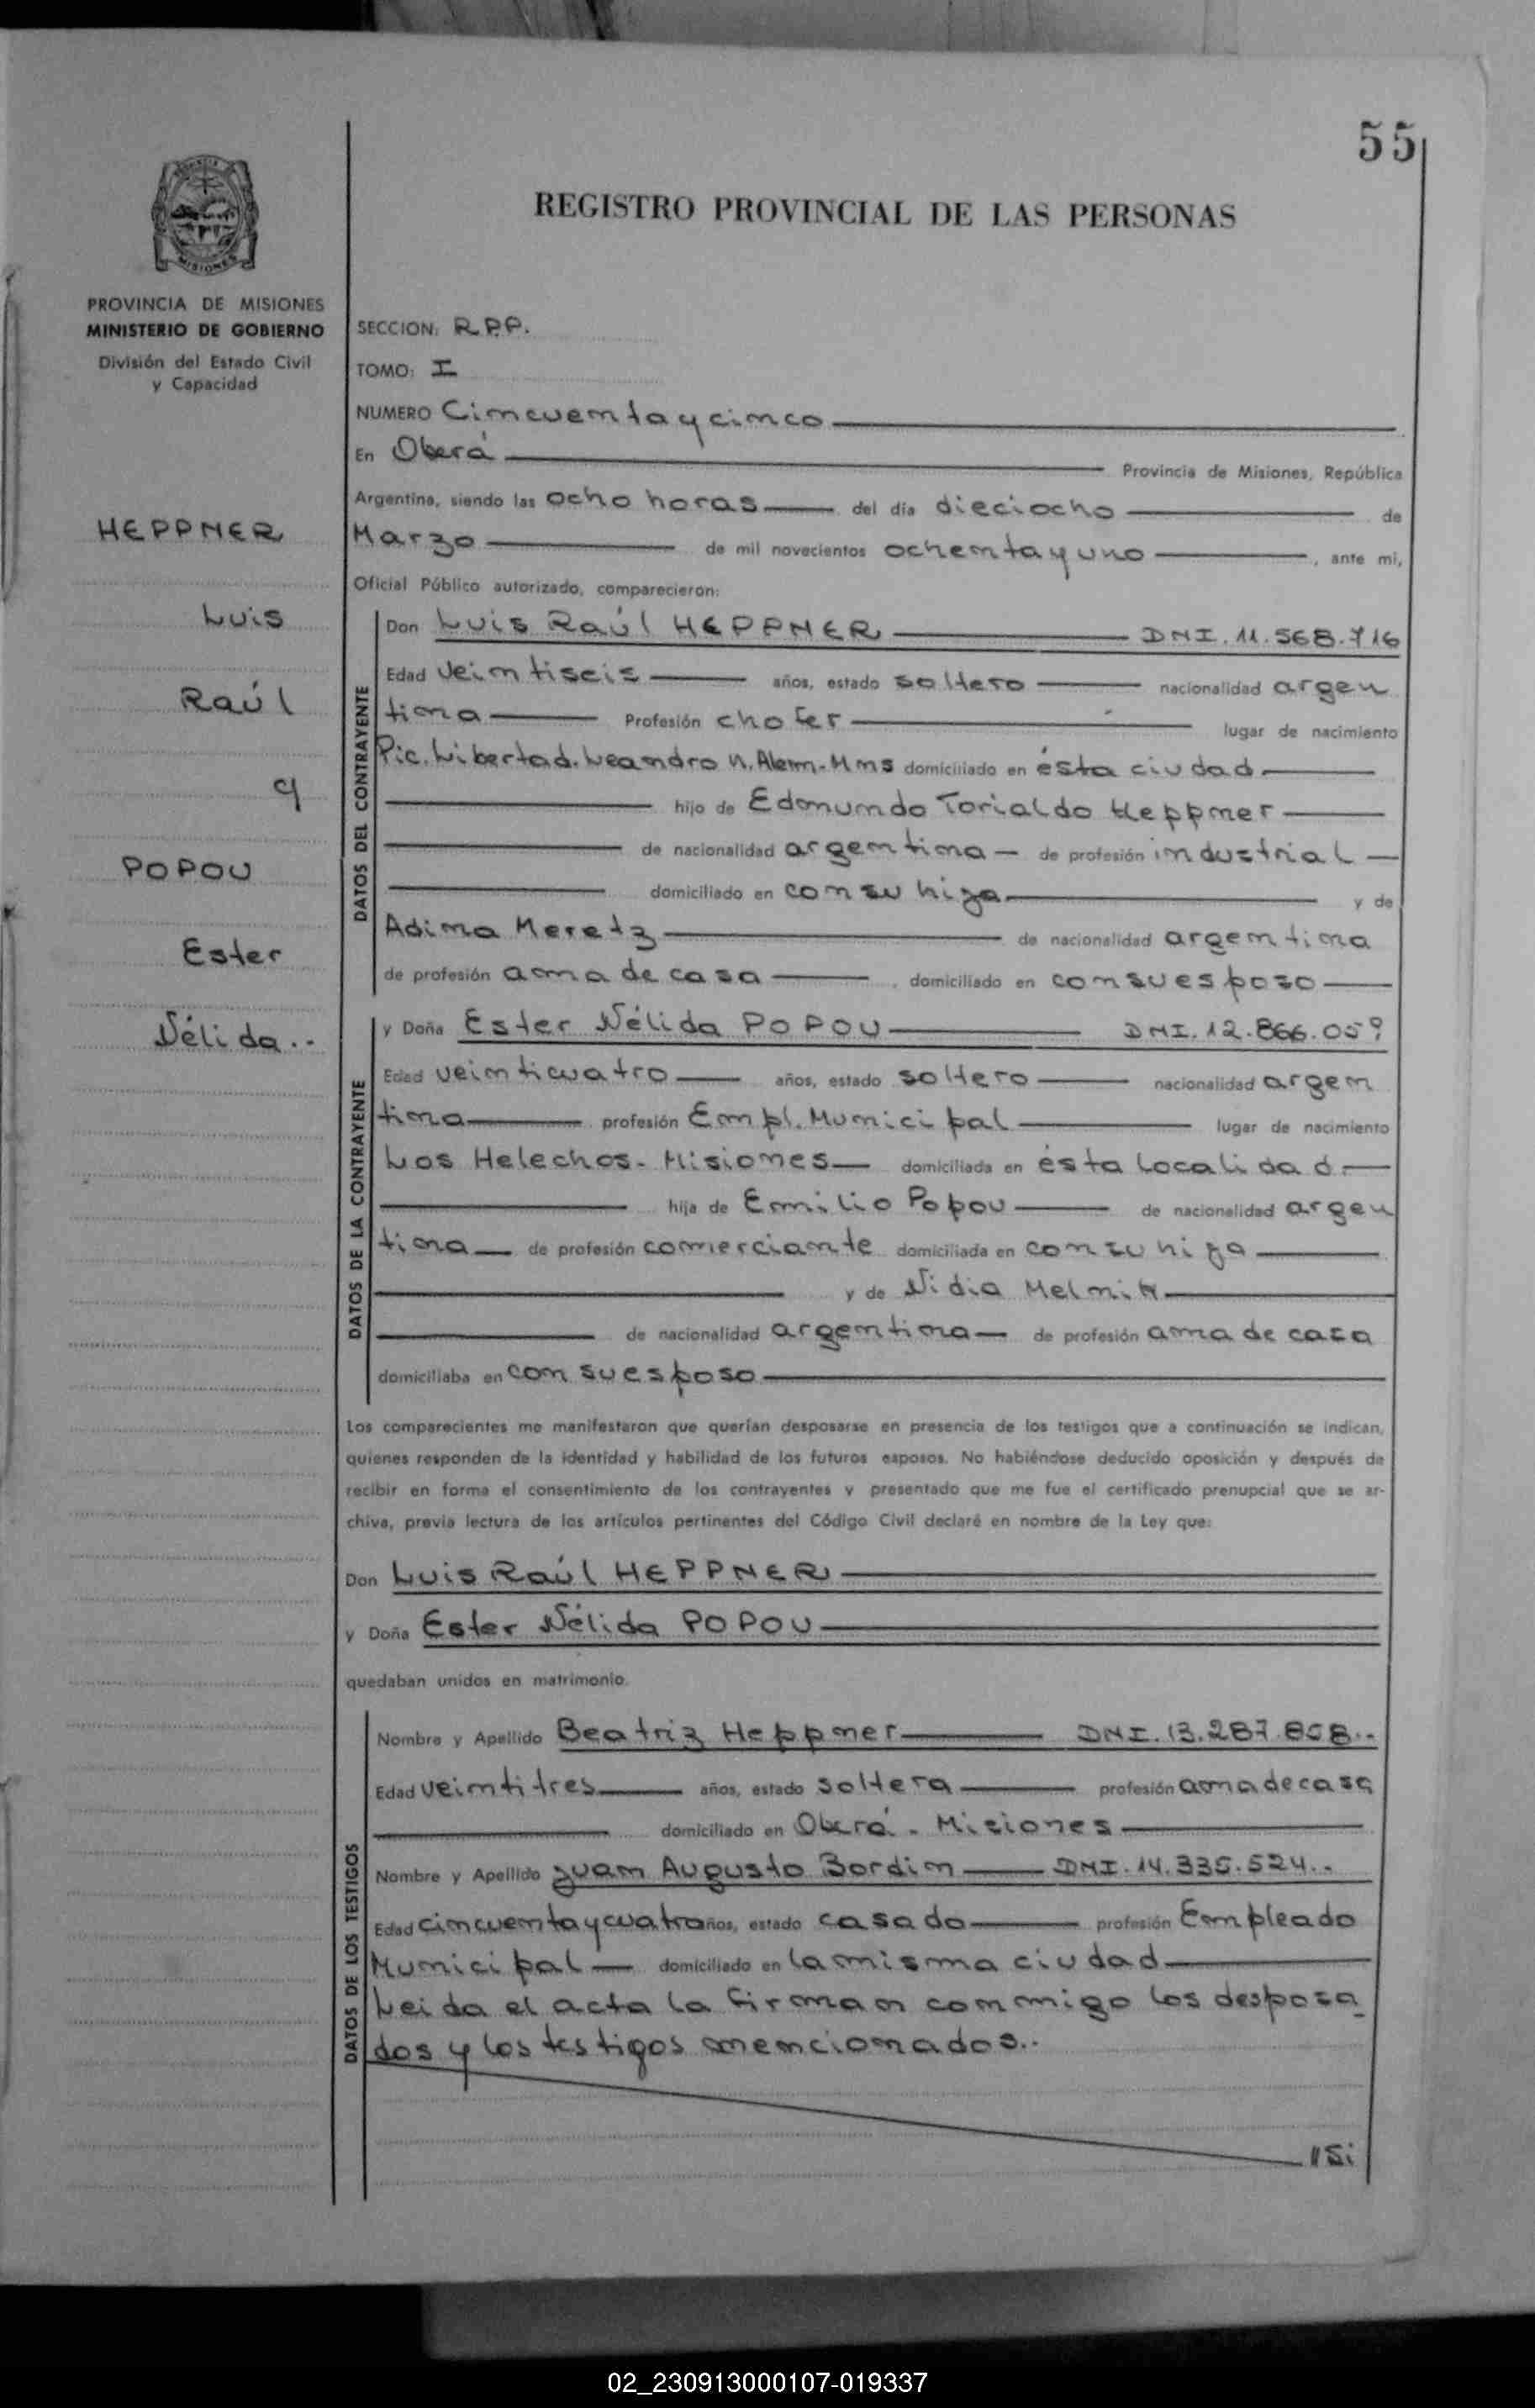 55
REGISTRO PROVINCIAL DE LAS PERSONAS
PROVINCIA DE MISIONES
MINISTERIO DE GOBIERNO
División del Estado Civil
y Capacidad
HEPPNER
Luis
Raúl
y
POPOU
Ester
Nélida..
SECCION: R.P.P.
TOMO: I
NUMERO Cincuenta y cinco
En Oberá Provincia de Misiones, República
Argentina, siendo las ocho horas del día dieciocho de
Marzo de mil novecientos ochenta y uno, ante mi,
Oficial Público autorizado, comparecieron:
DATOS DEL CONTRAYENTE
Don Luis Raúl HEPPNER DNI. 11.568.716
Edad veintiseis años, estado soltero nacionalidad argen
tina Profesión chofer lugar de nacimiento
Pic. Libertad. Leandro N. Alem-Mns domiciliado en ésta ciudad.
hijo de Edmundo Torialdo Heppner
de nacionalidad argentina de profesión industrial
domiciliado en con su hijo y de
Adina Meretz de nacionalidad argentina
de profesión ama de casa, domiciliado en con su esposo
DATOS DE LA CONTRAYENTE
y Doña Ester Nélida POPOU DNI. 12.866.059
Edad veinticuatro años, estado soltero nacionalidad argen
tina profesión Empl. Municipal lugar de nacimiento
Los Helechos. Misiones domiciliada en ésta localidad.
hija de Emilio Popou de nacionalidad argen
tina de profesión comerciante domiciliada en con su hija
y de Nidia Melnik
de nacionalidad argentina de profesión ama de casa
domiciliaba en con su esposo
Los comparecientes me manifestaron que querían desposarse en presencia de los testigos que a continuación se indican,
quienes responden de la identidad y habilidad de los futuros esposos. No habiéndose deducido oposición y después de
recibir en forma el consentimiento de los contrayentes y presentado que me fue el certificado prenupcial que se ar-
chiva, previa lectura de los artículos pertinentes del Código Civil declaré en nombre de la Ley que:
Don Luis Raúl HEPPNER
y Doña Ester Nélida POPOU
quedaban unidos en matrimonio.
DATOS DE LOS TESTIGOS
Nombre y Apellido Beatriz Heppner DNI. 13.287.858..
Edad veintitres años, estado soltera profesión ama de casa
domiciliado en Oberá - Misiones
Nombre y Apellido Juan Augusto Bordin DNI. 14.335.524..
Edad cincuenta y cuatro años, estado casado profesión Empleado
Municipal domiciliado en la misma ciudad
Leida el acta la firman conmigo los desposa
dos y los testigos mencionados..
//Si
02_230913000107-019337